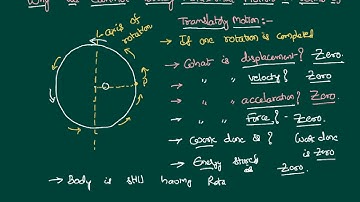 Translatory Motion:-
axis of rotation
→ If one rotation is completed
→ What is displacement? Zero.
→ " " velocity? Zoro
→ " " acceleration? Zoro.
→ " " Force? - Zero.
→ work done is? Work done is Zero
→ Energy stored is Zoro.
→ Body is still having Rota